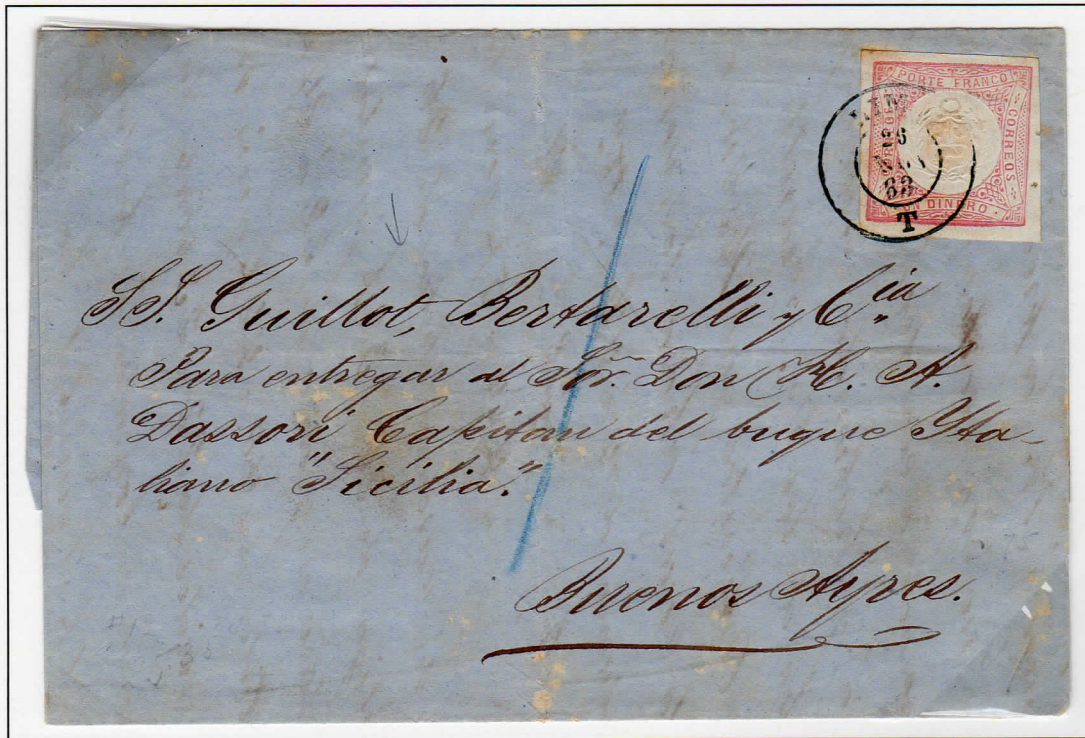 PORTE FRANCO
CORREOS
UN DINERO
26
T
SS. Guillot, Bertarelli y Cia
Para entregar al Sor. Don H. A.
Dassori Capitan del buque Yta-
liano "Sicilia."
Buenos Ayres.